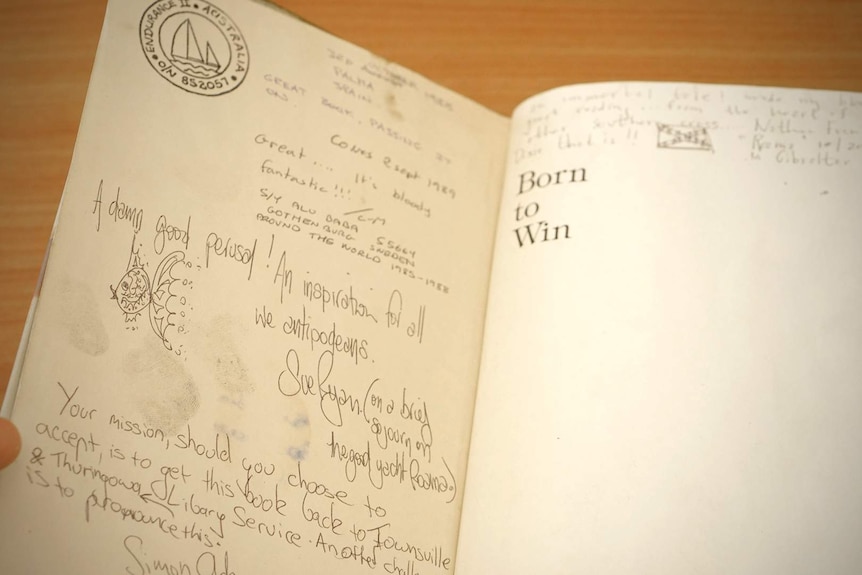 ENDURANCE II • AUSTRALIA
O/N 852057
3RD 1988
PALMA
SPAIN
GREAT BOOK, PASSING IT
ON.
COWES 2 SEPT 1989
Great.... It's bloody
fantastic!!!
S/Y ALI BABA S5664
GOTHENBURG SWEDEN
AROUND THE WORLD 1985-1988
A damn good perusal! An inspiration for all
we antipodeans.
Sue Ryan. (on a brief
sojourn on
the good yacht
Your mission, should you choose to
accept, is to get this book back to Townsville
& Thuringowa Libary Service. Another
is to pronounce this.
Simon
immortal made my
reading... from the heart of
southern cross
that is!!
to Gibraltar
Born
to
Win